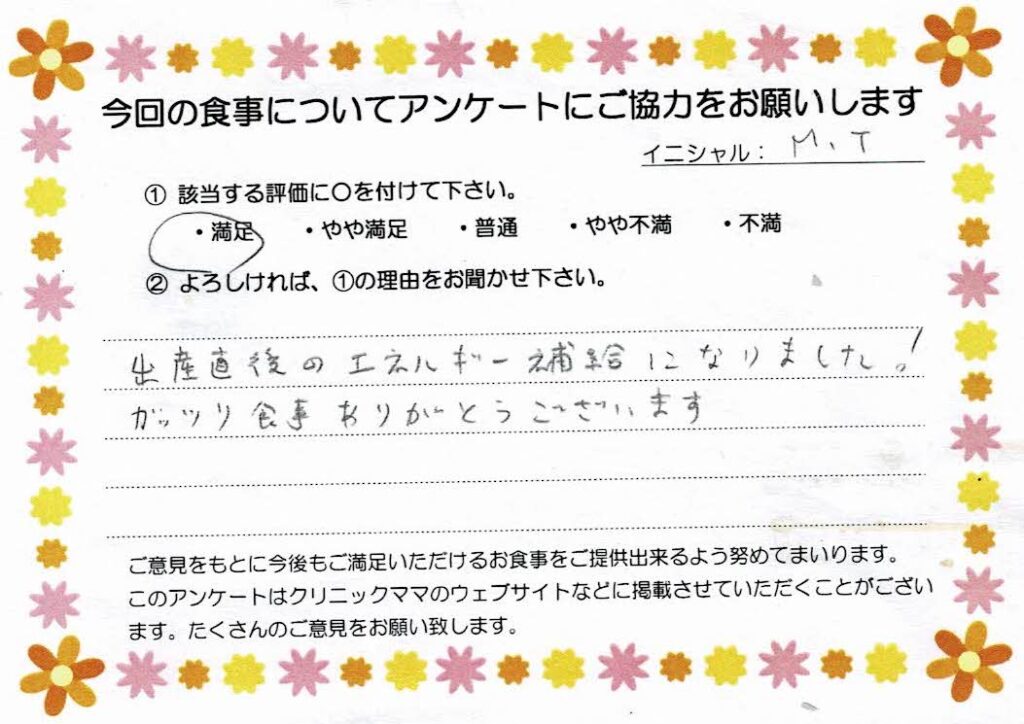 今回の食事についてアンケートにご協力をお願いします
イニシャル： M、T
① 該当する評価に〇を付けて下さい。
・満足 ・やや満足 ・普通 ・やや不満 ・不満
② よろしければ、①の理由をお聞かせ下さい。
出産直後のエネルギー補給になりました！
ガッツリ食事ありがとうございます
ご意見をもとに今後もご満足いただけるお食事をご提供出来るよう努めてまいります。
このアンケートはクリニックママのウェブサイトなどに掲載させていただくことがござい
ます。たくさんのご意見をお願い致します。